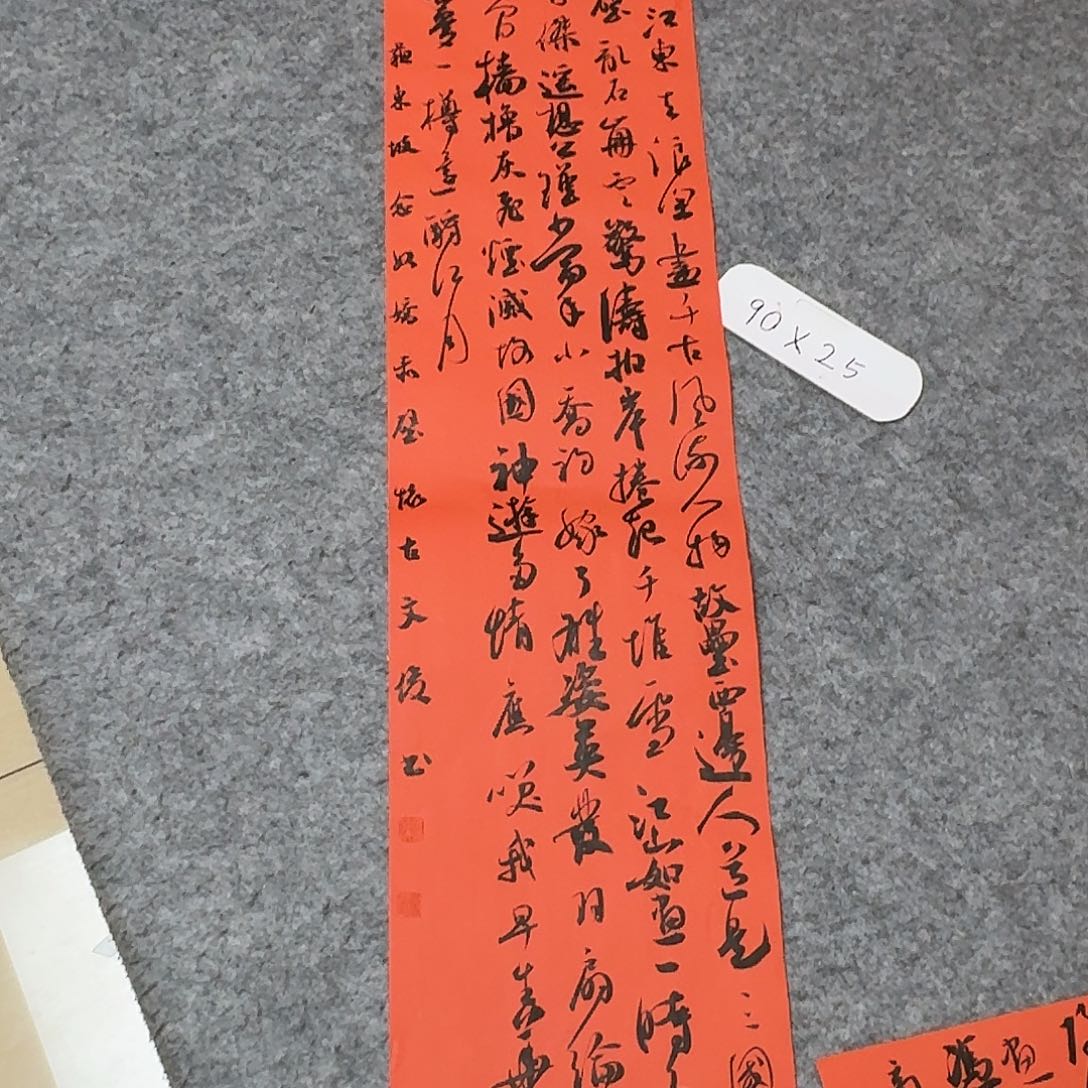 江東去浪淘盡千古風流人物故壘西邊人道是三國
壁亂石崩雲驚濤拍岸捲起千堆雪江山如畫一時
傑遥想公瑾當年小喬初嫁了雄姿英發羽扇綸
間檣櫓灰飛煙滅故國神遊多情應笑我早生華
夢一樽還酹江月
蘇東坡念奴嬌赤壁懷古文俊书
90x25